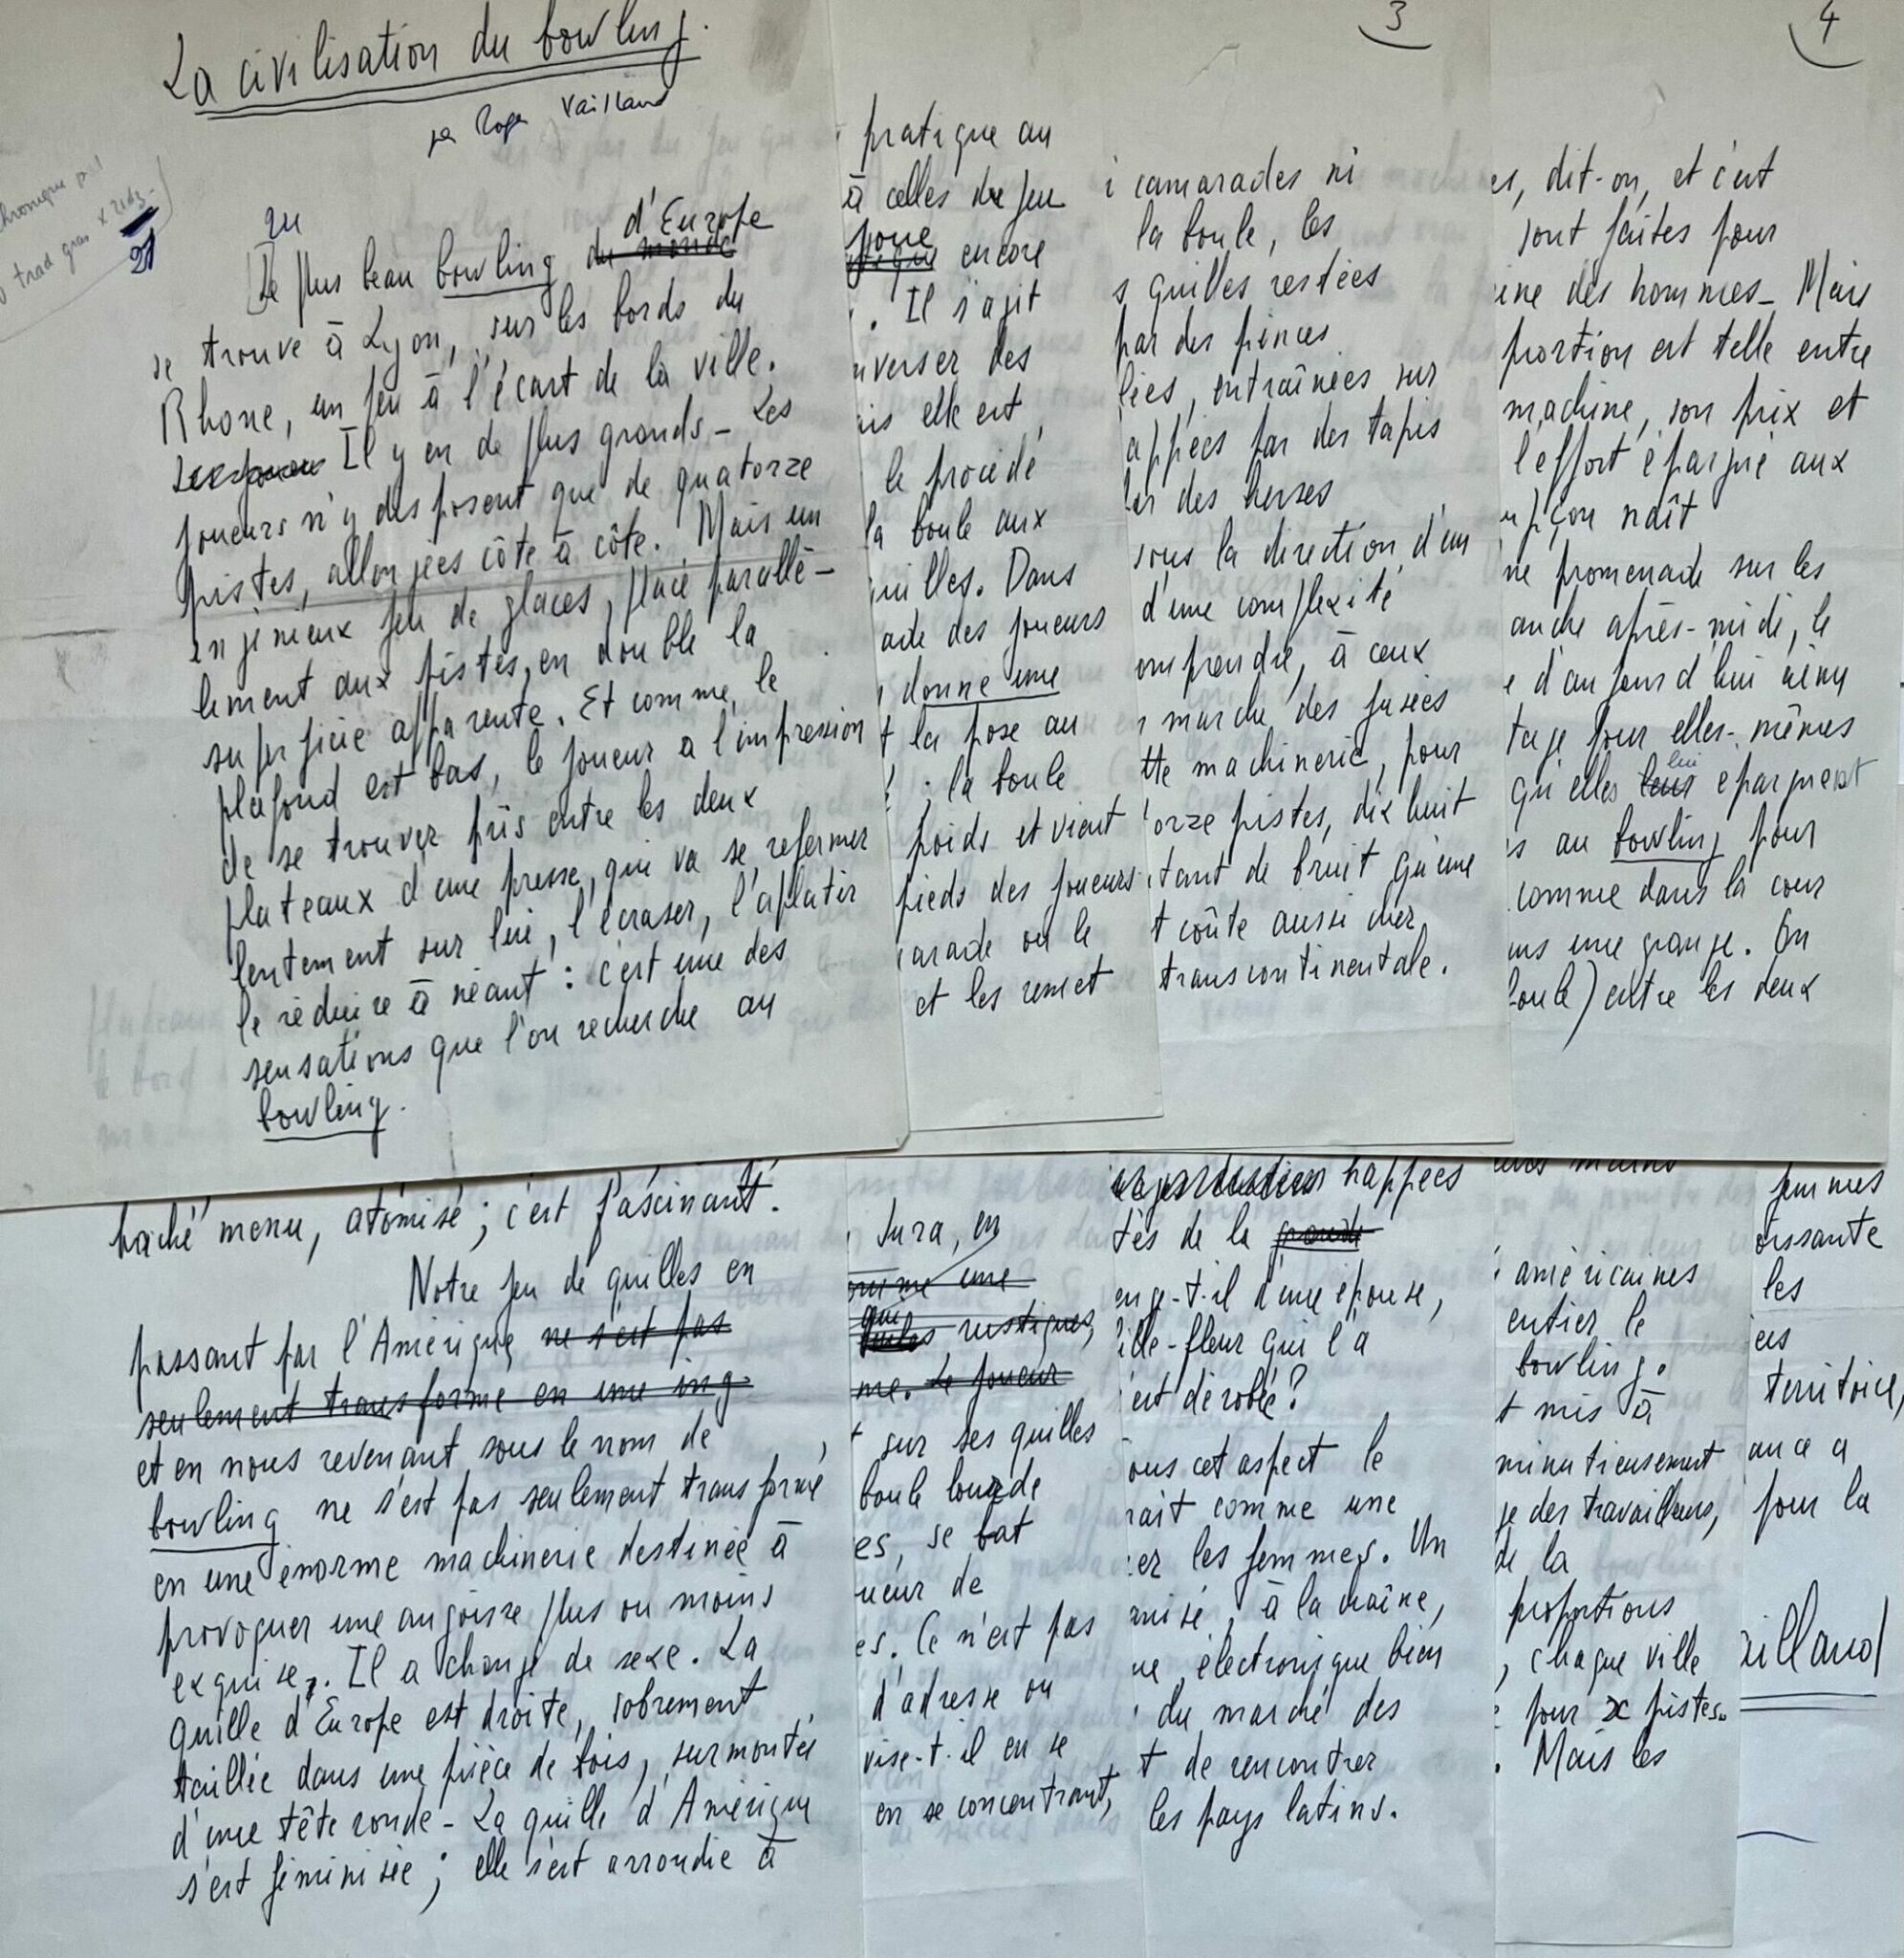 La civilisation du bowling.
par Roger Vailland
chronique
trad gras x
21
d'Europe
Le plus beau bowling du monde
se trouve à Lyon, sur les bords du
Rhone, un peu à l'écart de la ville.
Il y en de plus grands - Les
joueurs n'y disposent que de quatorze
pistes, allongées côte à côte. Mais un
ingénieux jeu de glaces, placé parallè-
lement aux pistes, en double la
superficie apparente. Et comme le
plafond est bas, le joueur a l'impression
de se trouver pris entre les deux
plateaux d'une presse, qui va se refermer
lentement sur lui, l'écraser, l'aplatir
le réduire à néant : c'est une des
sensations que l'on recherche au
bowling.
pratique au
à celles du jeu
joue
encore
. Il s'agit
nverser des
ais elle est,
le procédé
la boule aux
uilles. Dans
ade des joueurs
, donne une
t la pose au
; la boule
poids et vient
pieds des joueurs
arade ou le
et les remet
3
i camarades ni
la boule, les
s quilles restées
par des pinces
liées, entraînées sur
appées par des tapis
les des herses
sous la direction d'un
d'une complexité
omprendre, à ceux
marche des fusées
tte machinerie, pour
orze pistes, dix huit
tant de bruit qu'une
t coûte aussi cher
transcontinentale.
4
es, dit-on, et c'est
sont faites pour
ine des hommes - Mais
portion est telle entre
machine, son prix et
l'effort épargné aux
upçon naît
ne promenade sur les
anche après-midi, le
e d'aujourd'hui aimy
tage pour elles-mêmes
lui
qu'elles leur epargnent
s au bowling pour
comme dans la cour
ns une grange. On
boule) entre les deux
haché menu, atomisé ; c'est fascinant.
Notre jeu de quilles en
passant par l'Amérique ne s'est pas
seulement transformé en une ing
et en nous revenant sous le nom de
bowling ne s'est pas seulement transformé
en une énorme machinerie destinée à
provoquer une angoisse plus ou moins
exquise. Il a changé de sexe. La
quille d'Europe est droite, sobrement
taillée dans une pièce de bois, surmontée
d'une tête ronde - La quille d'Amérique
s'est féminisée ; elle s'est arrondie à
Jura, en
omme une
qui
rustiques,
me. Le joueur
t sur ses quilles
boule lourde
es, se bat
ueur de
es. Ce n'est pas
d'adresse ou
vise-t-il en se
en se concentrant,
happées
tés de la grande
enge-t-il d'une épouse,
ille-fleur qui l'a
est dérobée?
ous cet aspect le
rait comme une
er les femmes. Un
anisé, à la chaîne,
ue électronique bien
du marché des
t de rencontrer
les pays latins.
mains
américaines
entier le
bowling.
t mis à
minutieusement
ge des travailleurs,
de la
proportions
, chaque ville
e pour x pistes.
. Mais les
femmes
oissante
les
es
territoire,
ance a
pour la
ailland